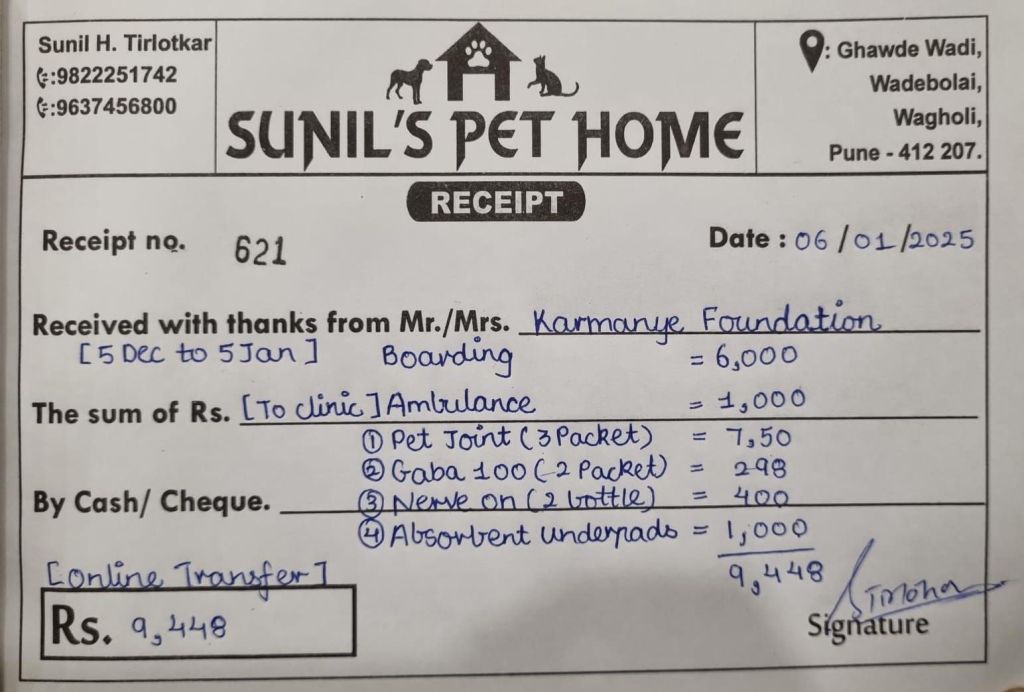 Sunil H. Tirlotkar
:9822251742
:9637456800
SUNIL'S PET HOME
: Ghawde Wadi,
Wadebolai,
Wagholi,
Pune - 412 207.
RECEIPT
Receipt no. 621
Date : 06/01/2025
Received with thanks from Mr./Mrs. Karmanye Foundation
[5 Dec to 5 Jan] Boarding = 6,000
The sum of Rs. [To clinic] Ambulance = 1,000
① Pet Joint (3 Packet) = 7,50
② Gaba 100 (2 Packet) = 298
By Cash/ Cheque. ③ Nerve on (2 bottle) = 400
④ Absorbent underpads = 1,000
[Online Transfer] 9,448
Rs. 9,448
Signature